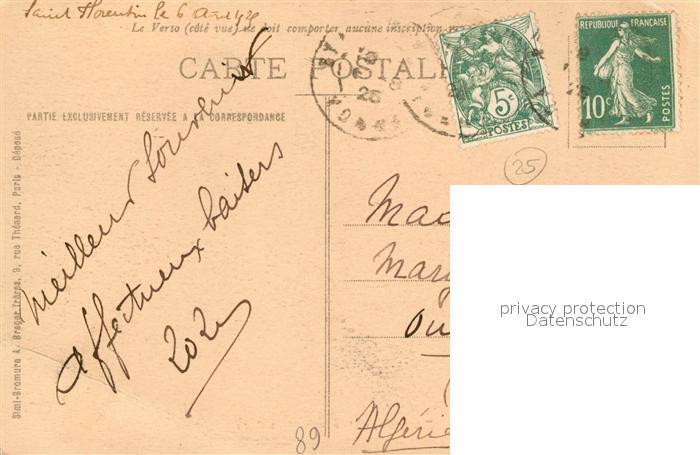 Saint Florentin le 6
Le Verso (côté vue) ne doit comporter aucune inscription
CARTE POSTALE
PARTIE EXCLUSIVEMENT RÉSERVÉE A LA CORRESPONDANCE
Simi-Bromure A. Breger frères, 9, rue Thénard, Paris - Déposé
Meilleur Souvenir
affectueux baisers
5c
POSTES
REPUBLIQUE FRANÇAISE
10c
POSTES
25
25
Mad
Mary
Ou
Algérie
89
privacy protection
Datenschutz